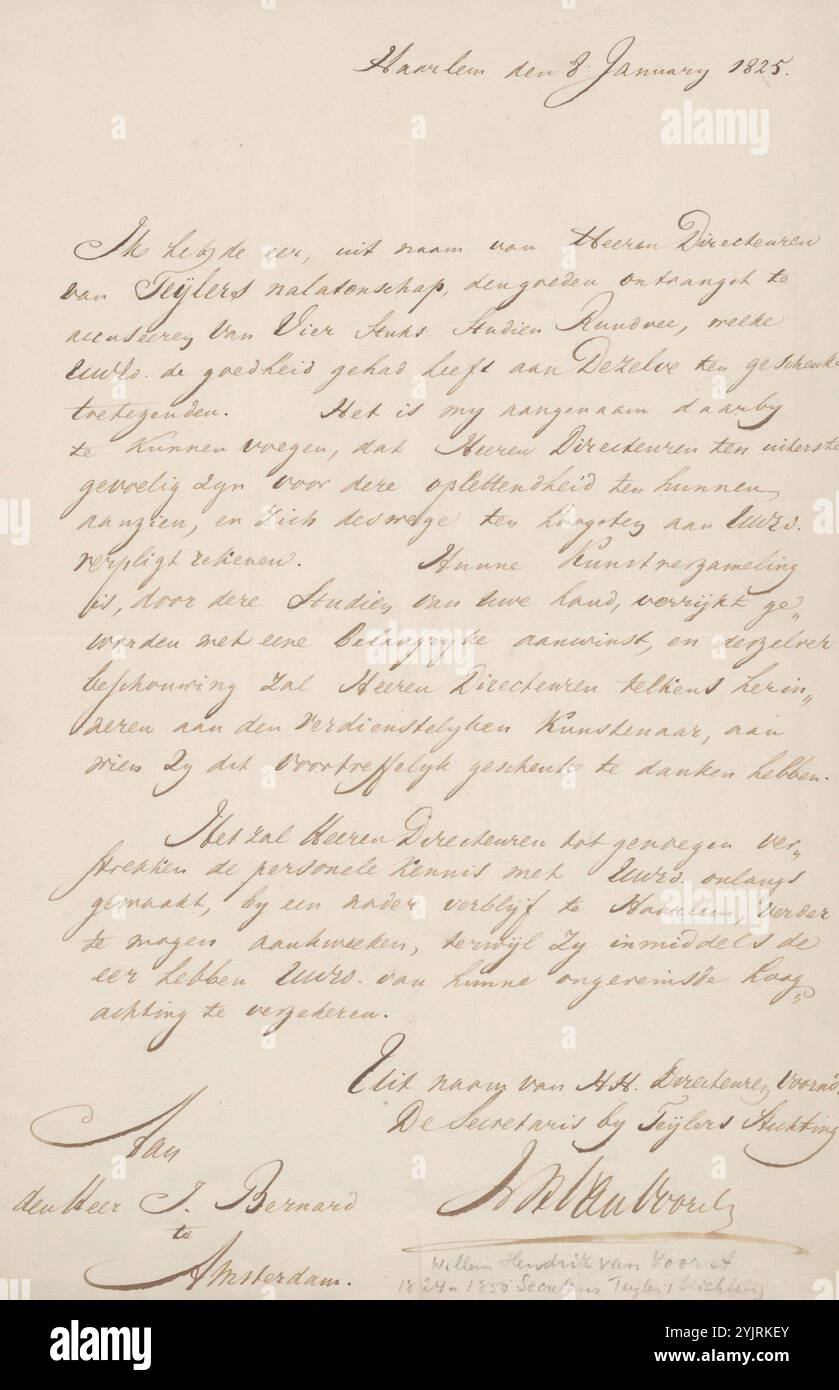 Haarlem den 8 January 1825.
Ik heb de eer, uit naam van Heeren Directeuren
van Teÿlers nalatenschap, den goeden ontvangst te
accuseeren van Vier Stuks Studien Rundvee, welke
UwEd. de goedheid gehad heeft aan Dezelve ten geschenke
toetezenden. Het is my aangenaam daarby
te kunnen voegen, dat Heeren Directeuren ten uiterste
gevoelig zyn voor dere oplettendheid ten hunnen
aanzien, en zich deswege ten hoogsten aan UwEd.
verpligt rekenen. Hunne Kunstverzameling
is, door dere Studien van Uwe hand, verrykt ge„
worden met eene belangryke aanwinst, en derzelver
beschouwing zal Heeren Directeuren telkens herin„
neren aan den verdienstelyken Kunstenaar, aan
wien zy dit voortreffelyk geschenk te danken hebben.
Het zal Heeren Directeuren tot genoegen ver„
strekken de personele kennis met UwEd. onlangs
gemaakt, by een nader verblyf te Haarlem, verder
te mogen aankweeken, terwyl zy inmiddels de
eer hebben UwEd. van hunne ongeveinsde hoog„
achting te verzekeren.
Uit naam van HH. Directeuren voornd.
De Secretaris by Teÿlers Stichting
WHvanVoorst
Aan
den Heer J. Bernard
te
Amsterdam.
Willem Hendrik van Voorst
1824-1850 Secretaris Teylers Stichting
alamy
Image ID: 2YJRKEY
www.alamy.com